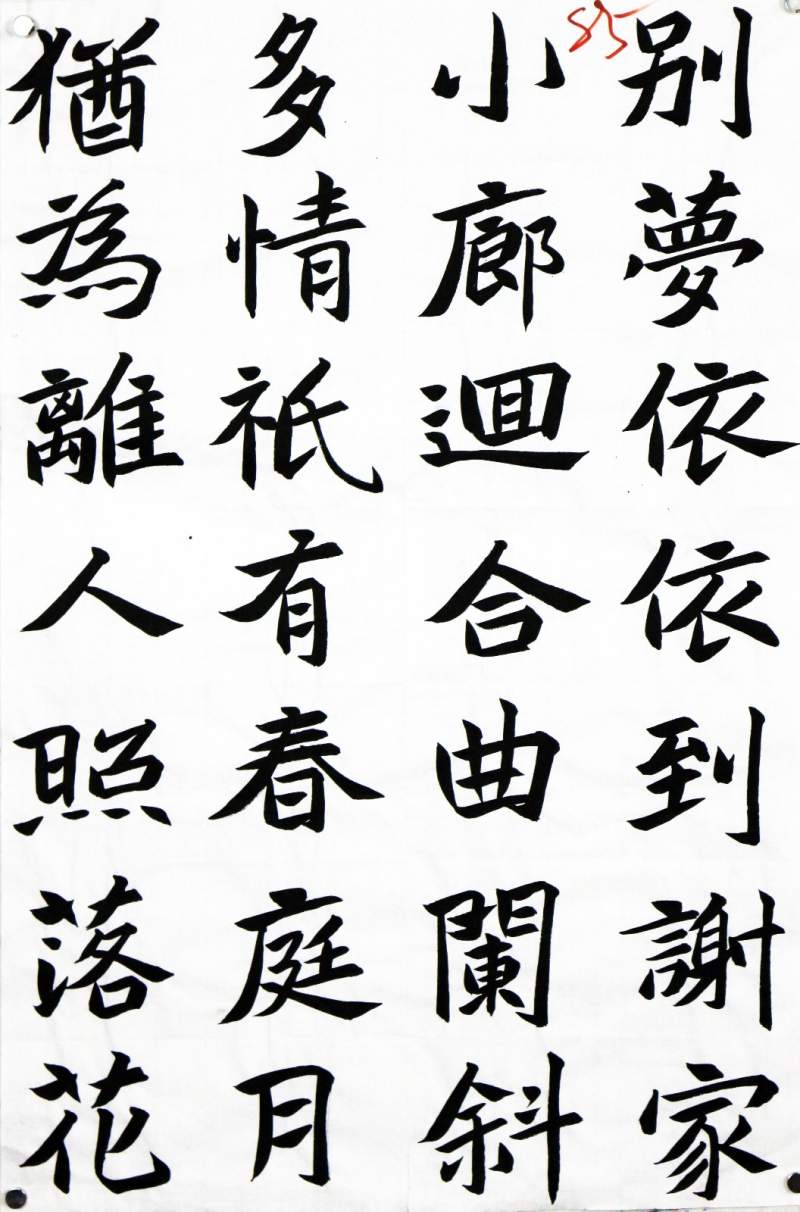 別夢依依到謝家
小廊迴合曲闌斜
多情祇有春庭月
猶為離人照落花
85